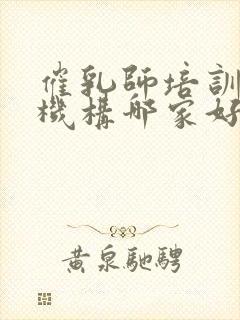 催乳師培訓
機構哪家好
黄泉馳騁